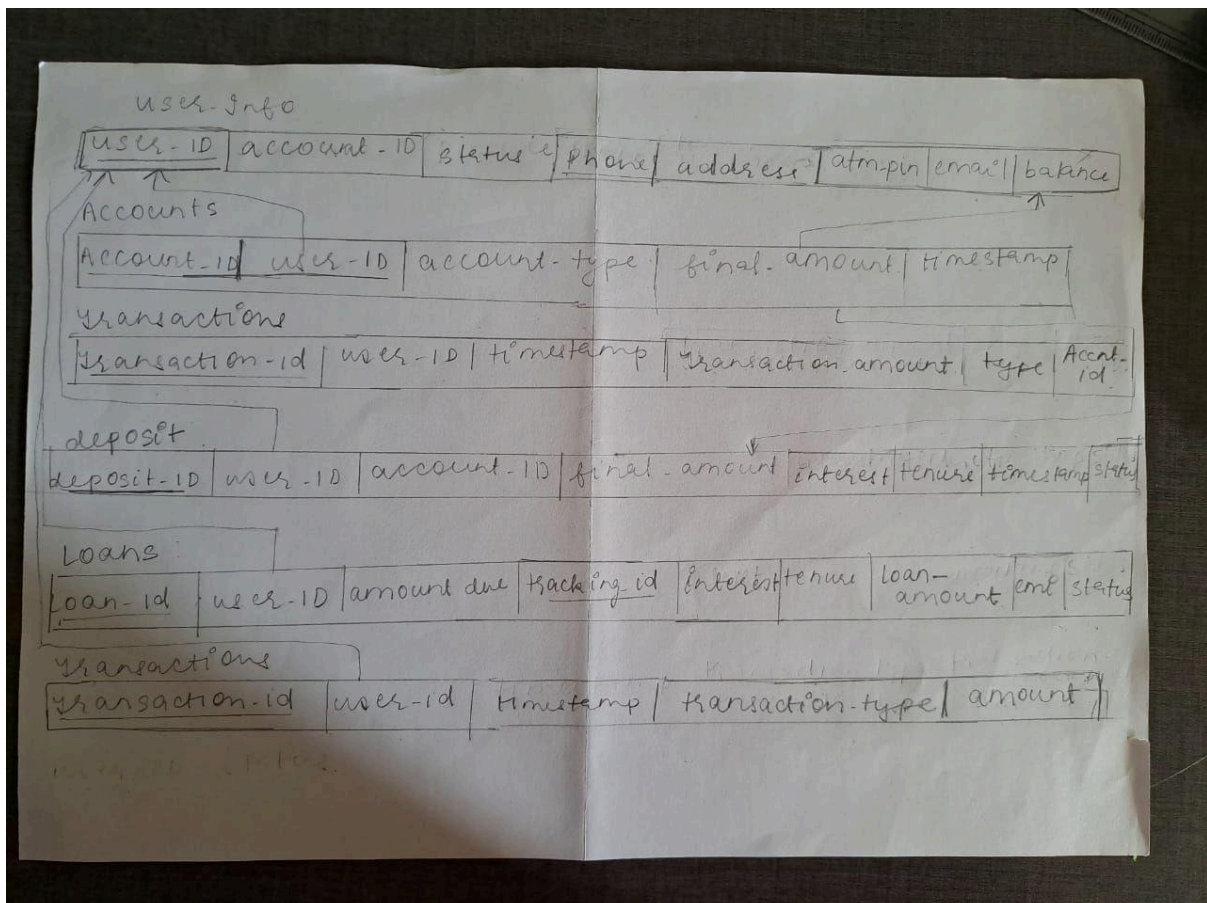 user-Info
user-ID account-ID status phone address atm-pin email balance
Accounts
Account-ID user-ID account-type final-amount timestamp
Transactions
Transaction-id user-ID timestamp transaction-amount type Accnt-id
deposit
deposit-ID user-ID account-ID final-amount interest tenure timestamp status
Loans
Loan-id user-ID amount due tracking-id interest tenure loan-amount emI status
Transactions
Transaction-id user-id timestamp transaction-type amount